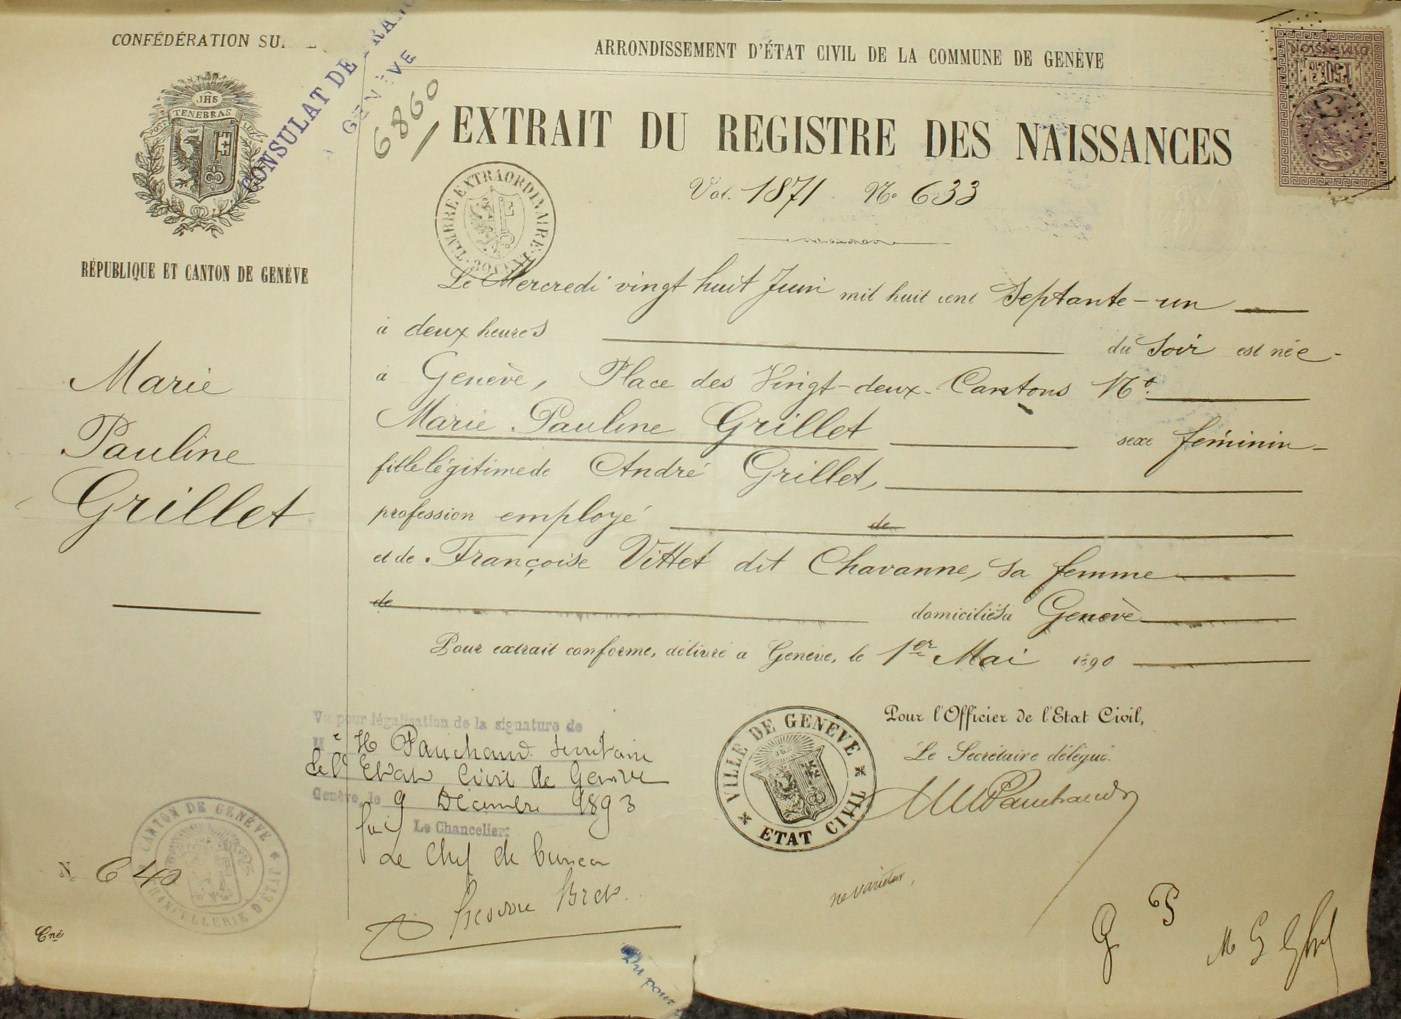 CONFÉDÉRATION
JHS
TENEBRAS
CONSULAT DE
GENÈVE
6860
RÉPUBLIQUE ET CANTON DE GENÈVE
Marie
Pauline
Grillet
ARRONDISSEMENT D'ÉTAT CIVIL DE LA COMMUNE DE GENÈVE
EXTRAIT DU REGISTRE DES NAISSANCES
Vol. 1871 No 633
TIMBRE EXTRAORDINAIRE
Le Mercredi vingt huit Juin mil huit cent Septante-un
à deux heures du Soir est née
à Genève, Place des Vingt-deux-Cantons No.
Marie Pauline Grillet sexe féminin
fille légitime de André Grillet,
profession employé de
et de Françoise Vittet dit Chavanne, sa femme
de domiciliés à Genève
Pour extrait conforme, délivré à Genève, le 1er Mai 1890
Pour l'Officier de l'Etat Civil,
Le Secrétaire délégué.
VILLE DE GENEVE
ETAT CIVIL
Vu pour légalisation de la signature de
Pauchaud
de l'Etat Civil de Genève
Genève, le 9 Décembre 1893
Le Chancelier:
Le Chef de bureau
CANTON DE GENÈVE
CHANCELLERIE D'ÉTAT
N. 640
Cné
ne varietur
Vu pour